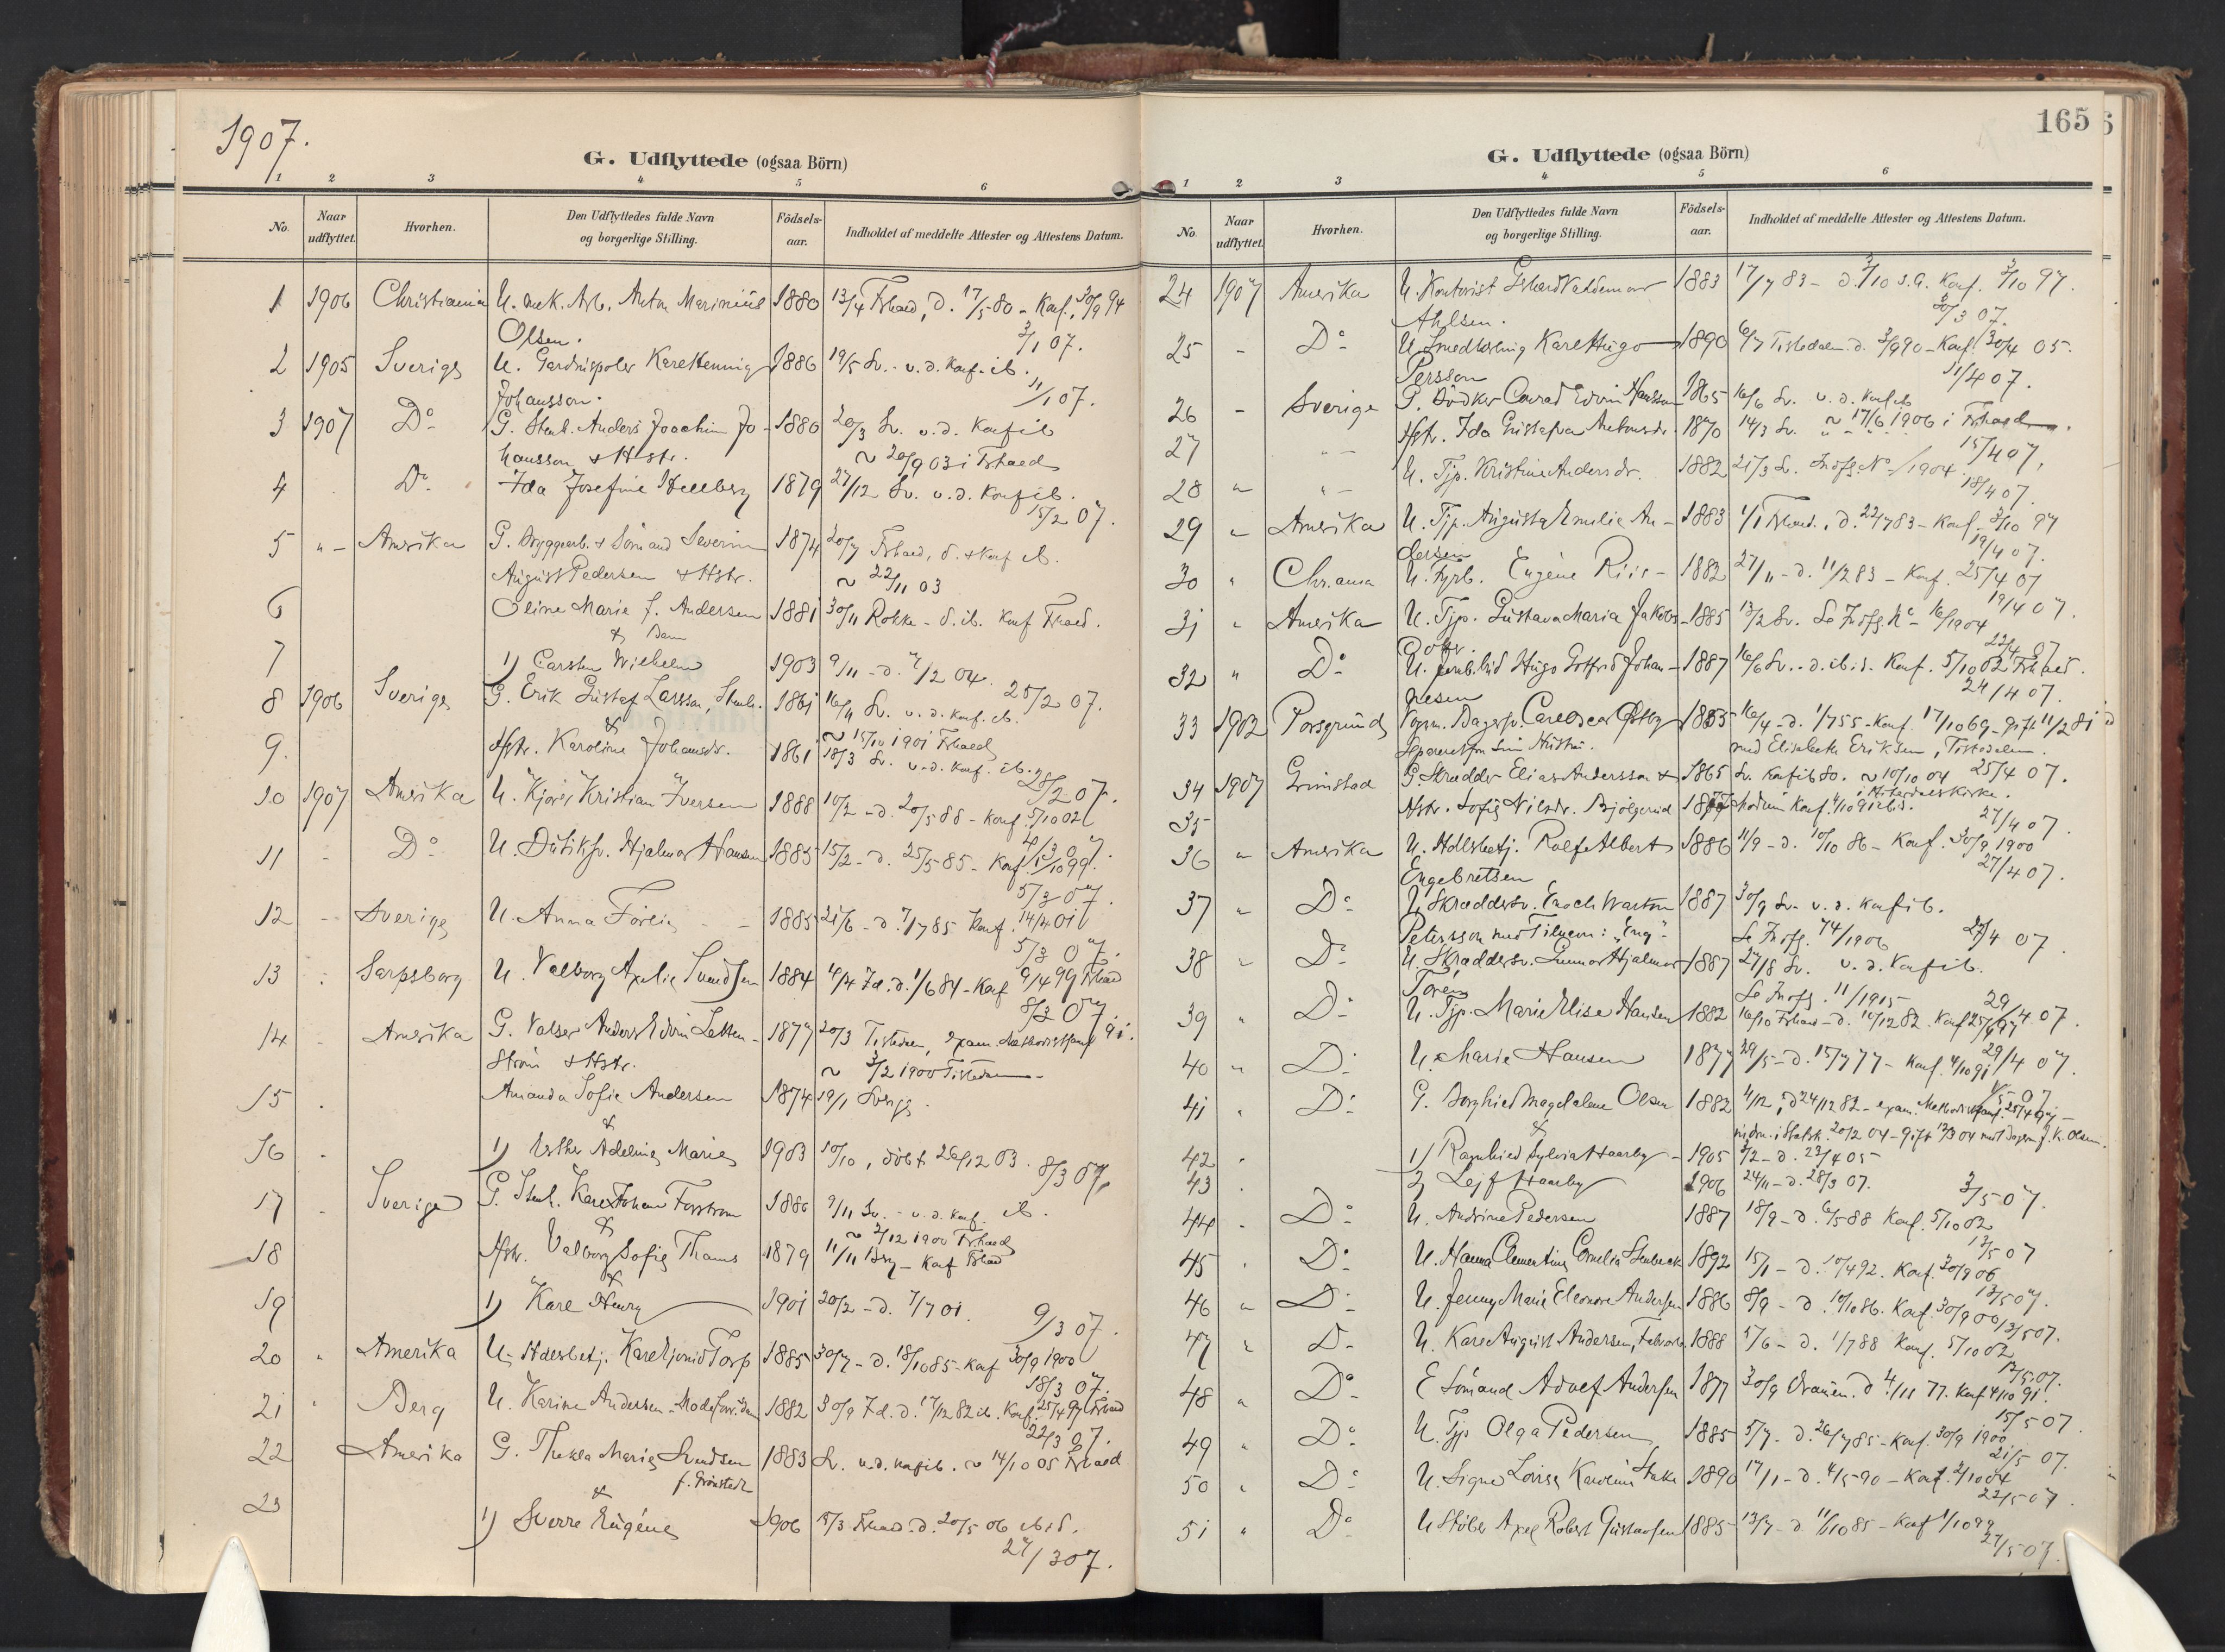 1907.
G. Udflyttede (ogsaa Börn)
1 2 3 4 5 6
No. Naar udflyttet. Hvorhen. Den Udflyttedes fulde Navn og borgerlige Stilling. Födsels-aar. Indholdet af meddelte Attester og Attestens Datum.
1 1906 Christiania U. mek. Arb. Anton Marinius 1880 13/4 Frhald, D. 17/5 80 - Konf. 30/9 94
Olsen. 3/1 07.
2 1905 Sverige U. Karl Henning 1886 19/5 Sv. - u. d. Konf. ib.
Johansson. 11/1 07.
3 1907 Do G. Stenh. Anders Joachim Jo- 1880 20/3 Sv. u. d. Konf ib
hansson & Hstr. ~ 20/9 03 i Frhald
4 Do Ida Josefine Hellberg 1879 27/12 Sv. u. d. Konf ib.
15/2 07.
5 " - Amerika G. Bryggearb. & Sömand Severin 1874 20/7 Frhald, d. & Konf ib.
August Pedersen & Hstr. ~ 22/11 03
6 Oline Marie f. Andersen 1881 30/11 Rokke - d. ib. Konf Frhald.
& Barn
7 1) Carsten Wilhelm 1903 9/11 - d. 7/2 04.
25/2 07.
8 1906 Sverige G. Erik Gustaf Larsson, Stenh. 1861 16/11 Sv. u. d. Konf. ib.
& ~ 15/10 1901 Frhald
9. Hstr. Karoline Johansdr. 1861 18/3 Sv. u. d. Konf. ib.
28/2 07.
10 1907 Amerika U. Kristian Iversen 1888 10/2 - d. 20/5 88 - Konf. 5/10 02
4/3 07.
11 - Do U. Butiksb. Hjalmar Hansen 1885 15/2 - d. 25/5 85 - Konf. 1/10 99.
5/3 07.
12 - Sverige U. Anna 1885 21/6 - d. 7/7 85 Konf. 14/4 01
5/3 07.
13 Sarpsborg U. Valborg Svendsen 1884 4/4 Id. d. 1/6 84 - Konf 9/4 99 Frhald
8/3 07.
14 - Amerika G. Valser Anders Edvin 1877 20/3 Tistedalen, exam. Methodistsamf 91.
ström & Hstr. ~ 3/2 1900 Tistedalen -
15 . Amanda Sofie Andersen 1874 19/1 Sverige.
&
16 . 1) Esther Adeline Marie 1903 10/10, döbt 26/12 03. 8/3 07,
17 - Sverige G. Stenh. Karl Johan Forsstrom 1880 9/11 Sv. - u. d. Konf ib.
& ~ 2/12 1900 Frhald
18 Hstr. Valborg Sofie Thams 1879 11/11 Berg - Konf Frhald
&
19 1) Karl Henry 1901 20/2 - d. 7/7 01.
9/3 07.
20 " Amerika U. Handelsbetj. Karl Torp 1885 30/7 - d. 18/10 85 - Konf 30/9 1900
18/3 07.
21 " Berg U. Karine Andersen. 1882 30/9 Id. d. 17/12 82 ib. Konf. 25/4 97 Frhald
22/3 07.
22 Amerika G. Thekla Marie Svendsen 1883 Sv. u. d. Konf ib. ~ 14/10 05 Frhald
f. Grönstedt
&
23 1) Sverre Eugéne 1906 15/3 Frhald d. 20/5 06 ibid.
27/3 07.
165
G. Udflyttede (ogsaa Börn)
1 2 3 4 5 6
No. Naar udflyttet. Hvorhen. Den Udflyttedes fulde Navn og borgerlige Stilling. Födsels-aar. Indholdet af meddelte Attester og Attestens Datum.
24 1907 Amerika U. Kontorist Valdemar 1883 17/7 83 - d. 7/10 s.A. Konf. 3/10 97.
Ahlsen. 30/3 07.
25 - Do U. Karl Hugo 1890 6/7 Tistedalen d. 3/9 90 - Konf. 30/4 05.
Persson 11/4 07.
26 - Sverige G. Bödker Conrad Edvin Hansson 1865 16/6 Sv. u. d. Konf ib
27 " - Hstr. Ida Gustafva Antonsdr. 1870 14/3 Sv. " " " ~ 17/6 1906 i Frhald.
15/4 07,
28 " " - U. Tjp. Kristine Andersdr. 1882 21/3 Sv. Indfg. No /1904
18/4 07.
29 " Amerika U. Tjp. Augusta Emilie An- 1883 1/1 Frhald., d. 22/7 83 - Konf. 3/10 97
dersen 19/4 07.
30 " Chr.ania U. Eugéne Riis - 1882 27/11 - d. 11/2 83 - Konf. 25/4 97
19/4 07.
31 " Amerika U. Tjp. Gustava Maria Jakobs- 1885 13/2 Sv. Se Indfg. No 16/1904
dotr. 22/4 07
32 " Do U. Hugo Gotfrid Johan- 1887 16/6 Sv. - d. ibid. Konf. 5/10 02 Frhald.
nesen 24/4 07.
33 1902 Porsgrund Bagersv. Carl Oscar Östby 1855 16/4 - d. 1/7 55 - Konf. 17/10 69 - gift 11/2 81
Separeret fra sin Hustru. med Elisabeth Eriksen, Tistedalen.
25/4 07.
34 1907 Grimstad G. Skrædder Elias Andersson & 1865 Sv. Konf ib do. ~ 10/10 04
35 Hstr. Sofie Nilsdr. 1877 Modum Konf. 4/10 91 ibid.
27/4 07.
36 " Amerika U. Hdlsbetj. Rolf Albert 1886 11/9 - d. 10/10 86 - Konf. 30/9 1900
Engebretsen 27/4 07.
37 " Do U. Skræddersv. Enoch 1887 30/9 Sv. u. d. Konf ib.
Petersson med Tilnavn: "Eng". Se Indfg. 74/1906 27/4 07
38 " Do U. Skræddersv. Gunnar Hjalmar 1887 27/8 Sv. u. d. Konf ib.
Toren Se Indfg. 11/1905 29/4 07.
39 " Do U. Tjp. Marie Elise Hansen 1882 16/10 Frhald - d. 10/12 82. Konf 25/4 97
29/4 07.
40 " Do U. Marie Hansen 1877 29/5 - d. 15/7 77 - Konf. 4/10 91
1/5 07
41 " Do G. Borghild Magdalene Olsen 1882 4/12, d. 24/12 82 - exam. Methodistsamf. 25/4 97 -
& 20/2 04 - Gift 13/3 04 J. K. Olsen.
42 " 1) Ragnhild Sylvia Haarby - 1905 7/2 - d. 23/4 05
43 . 2) Lejf Haarby 1906 24/11 - d. 28/3 07.
3/5 07.
44 . Do U. Andrine Pedersen 1887 18/9 - d. 6/5 88 Konf. 5/10 02
13/5 07
45 . Do U. Hanna Clementine Cornelia Stenbeck 1892 15/1 - d. 10/4 92. Konf. 30/9 06
13/5 07.
46 " Do U. Jenny Marie Eleonore Andersen 1886 8/9 - d. 10/10 86. Konf. 30/9 00
13/5 07.
47 " Do U. Karl August Andersen, 1888 5/6 - d. 1/7 88 Konf. 5/10 02
13/5 07.
48 " Do E Sömand Adolf Andersen 1877 30/9 d. 4/11 77. Konf 4/10 91.
15/5 07.
49 " Do U. Tjp Olga Pedersen 1885 5/7 - d. 26/7 85 - Konf. 30/9 1900
21/5 07.
50 " Do U. Signe Lovise Karoline 1890 17/1 - d. 4/5 90 - Konf. 2/10 04
22/5 07.
51 " Do U Støber Axel Robert Gustavsen 1885 13/7 - d. 11/10 85 - Konf 1/10 99
27/5 07.